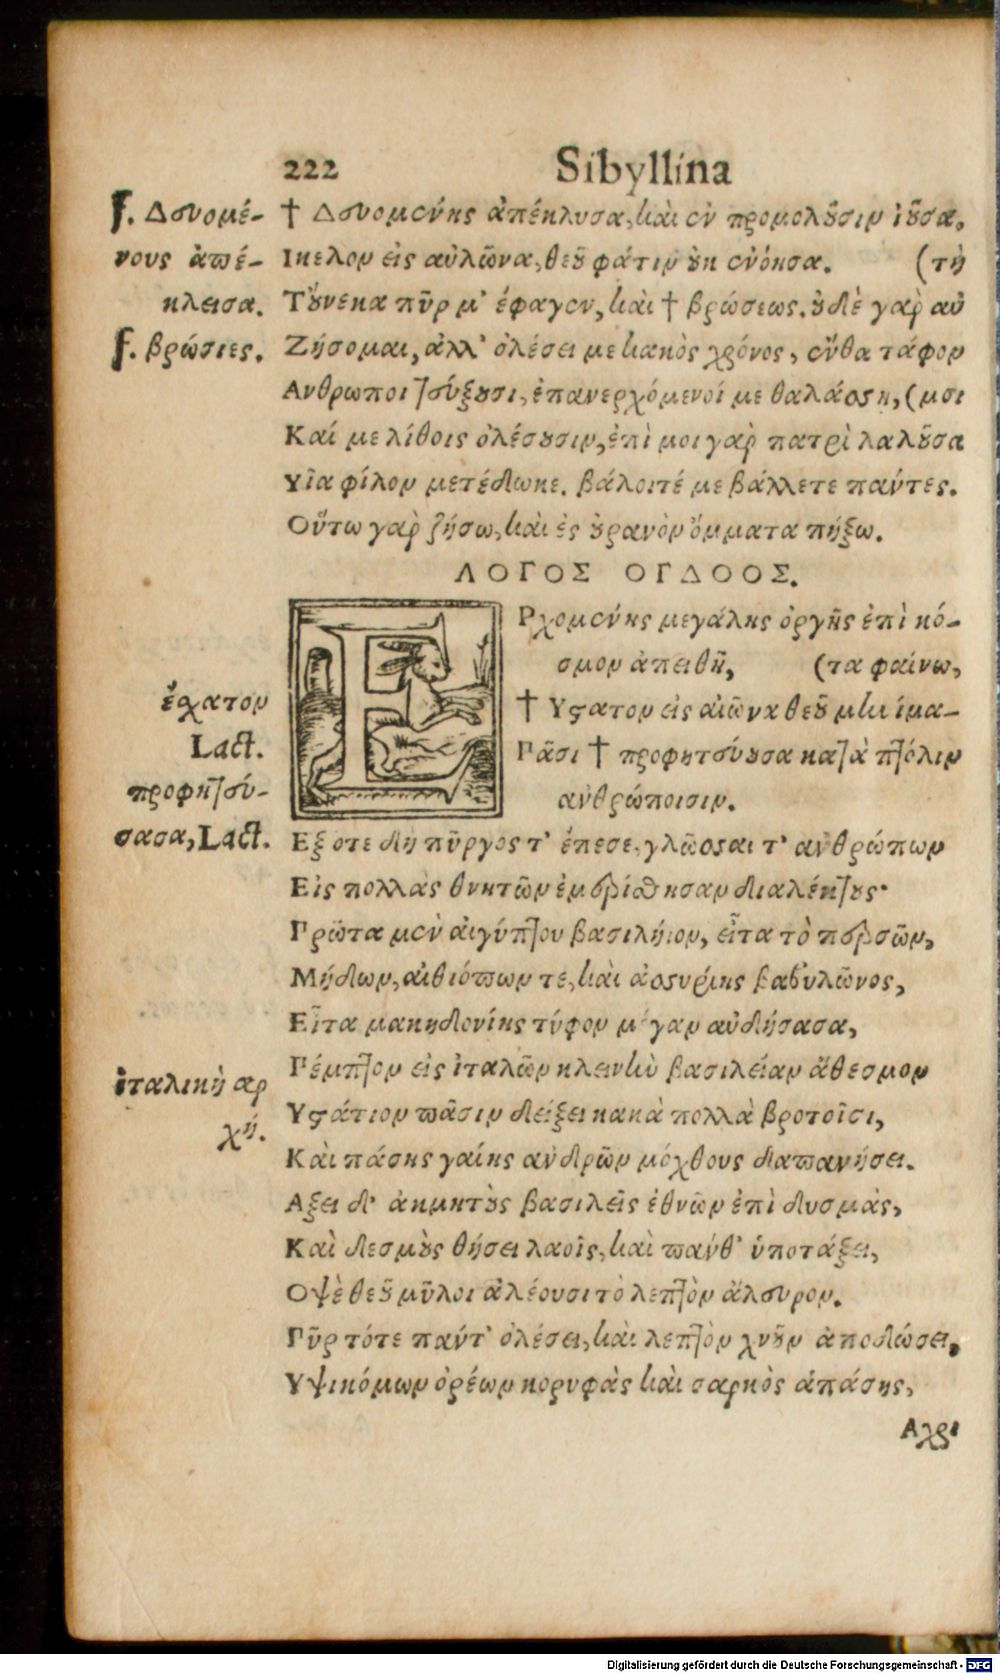 222 Sibyllina
f. Δευομέ-
νους ἀπέ-
κλεισα.
f. βρώσιες.
† Δευομένης ἀπέκλυσα, καὶ ἐν προμολοῦσιν ἰοῦσα,
Ικελον εἰς αὐλῶνα, θεοῦ φάτιν οὐκ ἐνόησα. (τὴ
Τοὔνεκα πῦρ μ' ἔφαγεν, καὶ † βρώσεως. οὐδὲ γὰρ αὐ
Ζήσομαι, ἀλλ' ὀλέσει με κακὸς χρόνος, ἔνθα τάφον
Ανθρωποι τεύξουσι, ἐπανερχόμενοί με θαλάσσῃ, (μσι
Καί με λίθοις ὀλέσουσιν, ἐπὶ μοι γὰρ πατρὶ λαλοῦσα
Υἷα φίλον μετέδωκε. βάλοιτέ με βάλλετε πάντες.
Οὕτω γὰρ ζήσω, καὶ ἐς οὐρανὸν ὄμματα πήξω.
ΛΟΓΟΣ ΟΓΔΟΟΣ.
ΕΡχομένης μεγάλης ὀργῆς ἐπὶ κό-
σμον ἀπειθῆ, (τα φαίνω,
† Υστατον εἰς αἰῶνα θεοῦ μην ίμα-
Πᾶσι † προφητεύουσα κατὰ πτόλιν
ἀνθρώποισιν.
ἔσχατον
Lact.
προφητεύ-
σασα, Lact.
Εξ οτε δὴ πῦργος τ' ἔπεσε, γλῶσσαι τ' ἀνθρώπων
Εἰς πολλὰς θνητῶν ἐμερίσθησαν διαλέκτους·
Πρῶτα μὲν αἰγύπτου βασιλήιον, εἶτα τὸ περσῶν,
Μήδων, αἰθιόπων τε, καὶ ἀσσυρίης βαβυλῶνος,
Εἶτα μακηδονίης τύφον μέγαν αὐδήσασα,
Πέμπτον εἰς ἰταλῶν κλεινὴν βασιλείαν ἄθεσμον
ἰταλικὴ αρ
χή.
Υστάτιον πᾶσιν δείξει κακὰ πολλὰ βροτοῖσι,
Καὶ πάσης γαίης ἀνδρῶν μόχθους δαπανήσει.
Αξει δ' ἀκμητοὺς βασιλεῖς ἐθνῶν ἐπὶ δυσμὰς,
Καὶ δεσμοὺς θήσει λαοῖς, καὶ πάνθ' ὑποτάξει,
Οψὲ θεοῦ μῦλοι ἀλέουσι τὸ λεπτὸν ἄλευρον.
Πῦρ τότε πάντ' ὀλέσει, καὶ λεπτὸν χνοῦν ἀποδώσει,
Υψικόμων ὀρέων κορυφὰς καὶ σαρκὸς ἁπάσης,
Αχρι
Digitalisierung gefördert durch die Deutsche Forschungsgemeinschaft - DFG